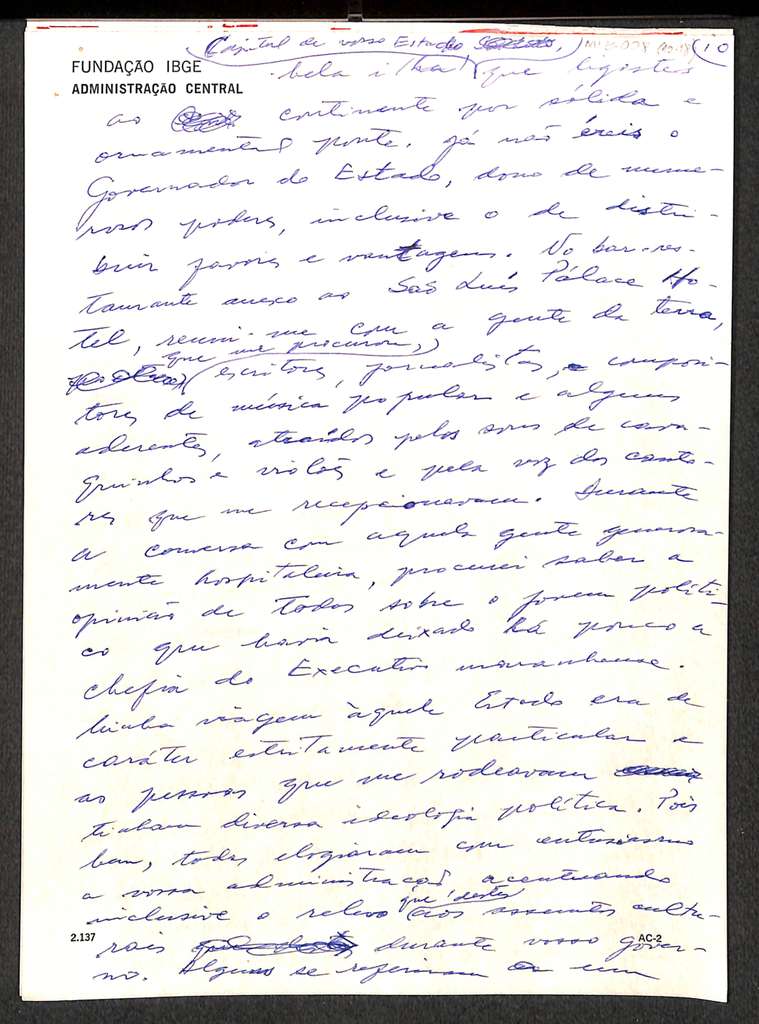 Capital de vosso Estado,
10
FUNDAÇÃO IBGE
ADMINISTRAÇÃO CENTRAL
bela ilha que ligastes
ao continente por sólida e
ornamental ponte. Já não éreis o
Governador do Estado, dono de nume-
rosos poderes, inclusive o de distri-
buir favores e vantagens. No bar-res-
taurante anexo ao São Luís Pálace Ho-
tel, reuni-me com a gente da terra,
que me procurou,
escritores, jornalistas, composi-
tores de música popular e alguns
aderentes, atraídos pelos sons de cava-
quinhos e violões e pela voz dos canto-
res que me recepcionavam. Durante
a conversa com aquela gente generosa-
mente hospitaleira, procurei saber a
opinião de todos sobre o jovem políti-
co que havia deixado há pouco a
chefia do Executivo maranhense.
Minha viagem àquele Estado era de
caráter estritamente particular e
as pessoas que me rodeavam
tinham diversa ideologia política. Pois
bem, todos elogiaram com entusiasmo
a vossa administração acentuando
que destes
inclusive o relevo aos assuntos cultu-
2.137
AC-2
rais durante vosso gover-
no. Alguns se referiram a um